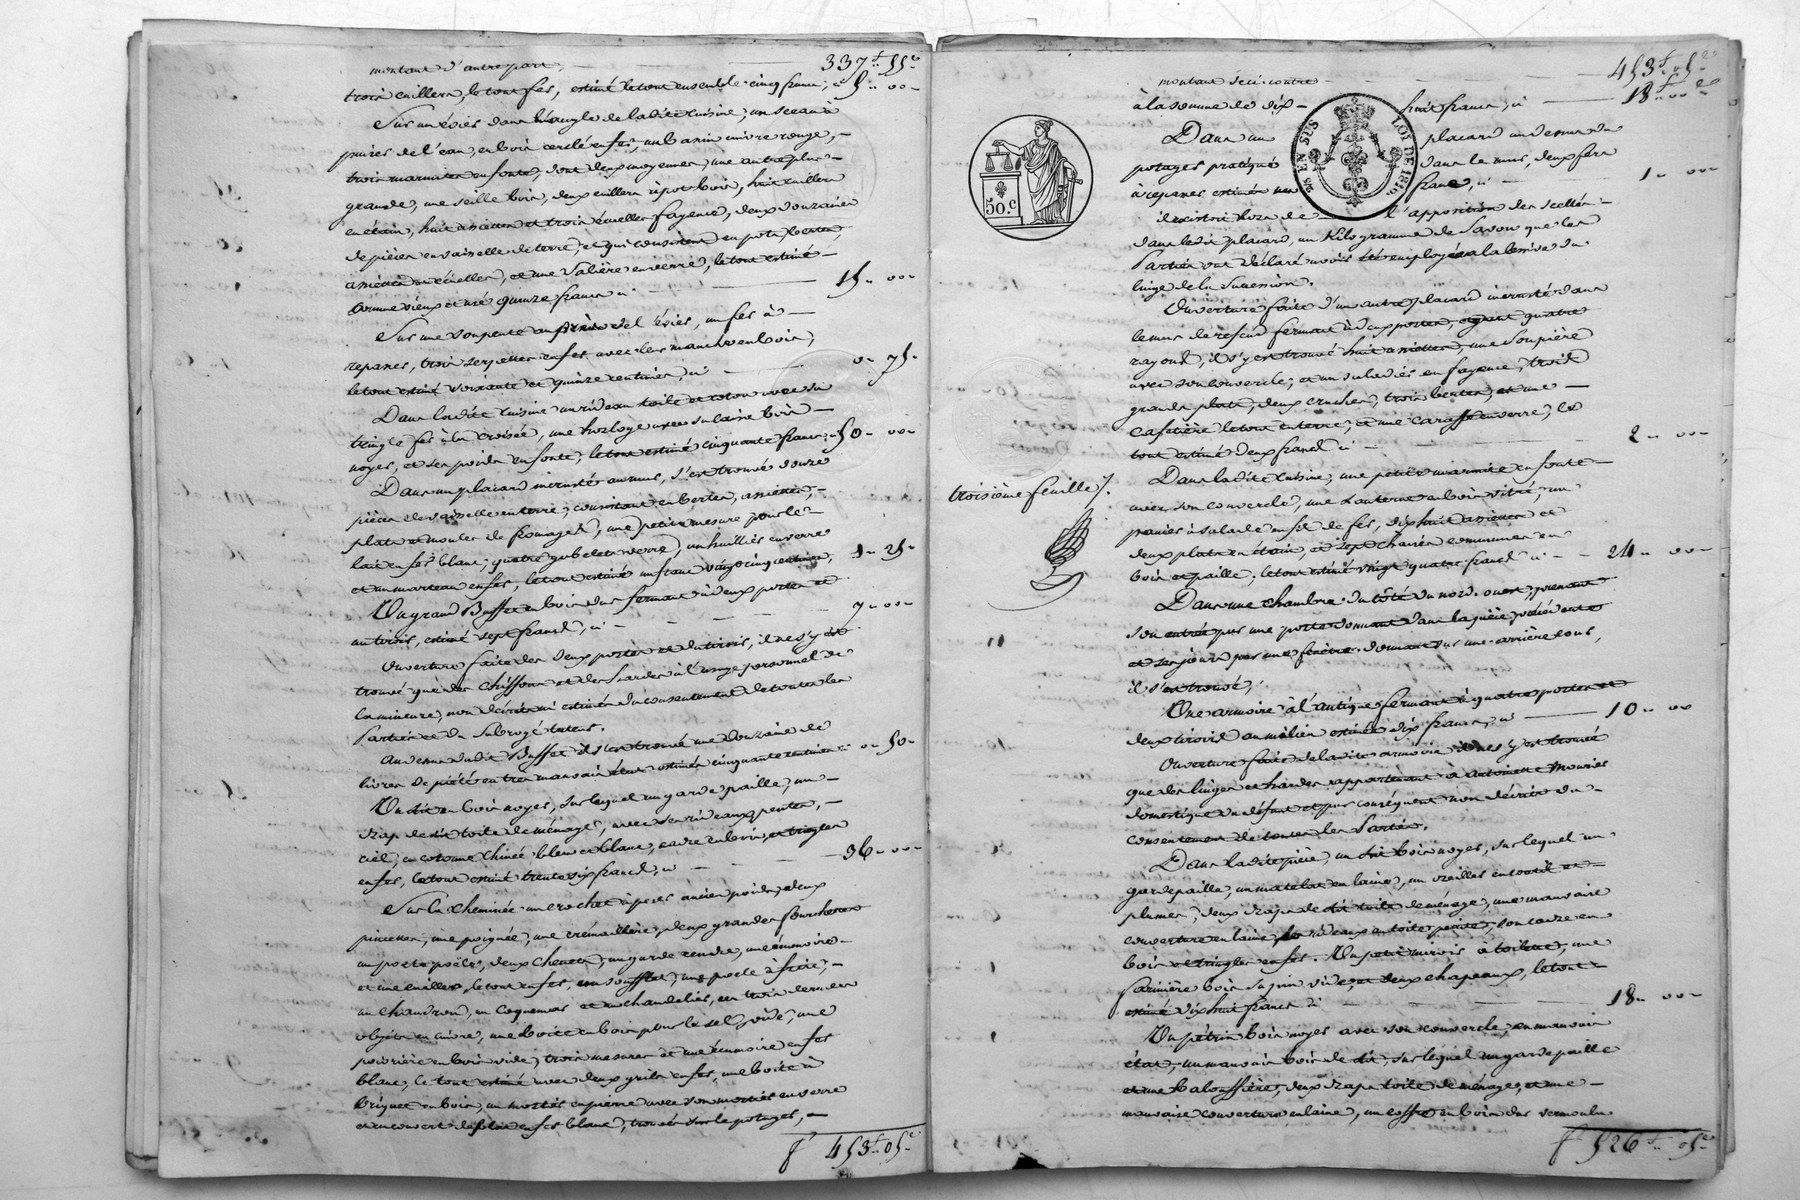 montant d'autre part, 337f..55c
trois cuillers, le tout fer, estimé le tout ensemble cinq francs, ci 5.. 00..
Sur un évier dans l'angle de la dite cuisine, un sceau à
puiser de l'eau, en bois cerclé en fer, un bassin cuivre rouge,
trois marmites en fonte, dont deux moyennes, une autre plus
grande, une seille bois, deux cuillers à pot bois, huit cuillers
en étain, huit assiettes et trois écuelles fayence, deux douzaines
de pièces en vaisselle de terre, et qui consistent en pots, bertes,
assiettes et écuelles, et une salière en verre, le tout estimé
comme vieux et usé quinze francs ci 15.. 00..
Sur une soupente au près de l'évier, un fer à
repasser, trois serpettes en fer avec leur manche en bois,
le tout estimé soixante et quinze centimes, ci 0.. 75..
Dans la dite cuisine un rideau toile et coton avec sa
tringle fer à la croisée, une horloge avec sa caisse bois
noyer, et ses poids en fonte, le tout estimé cinquante francs, 50.. 00..
Dans un placard incrusté au mur, s'est trouvé douze
pièces de vaisselle en terre, consistant en bertes, assiettes,
plats et moules de fromages, une petite mesure pour le
lait en fer blanc, quatre gobelets verre, un huilier en verre
et un marteau en fer, le tout estimé un franc vingt cinq centimes, 1.. 25..
Un grand Buffet en bois dur fermant à deux portes et
un tiroir, estimé sept francs, ci 7.. 00..
Ouverture faite des deux portes et du tiroir, il ne s'y est
trouvé que des chiffons et des hardes à l'usage personnel de
la mineure, non décrits ni estimés du consentement de toutes les
Parties et du Subrogé tuteur.
Au dessus dudit Buffet il s'est trouvé une douzaine de
livres de piété en très mauvais état estimés cinquante centimes ci 0.. 50..
Un lit en bois noyer, sur lequel un garde paille, un
drap de lit toile de ménage, avec ses rideaux, pentes,
ciel, en cotonne chinée bleu et blanc, cadre en bois, et tringles
en fer, le tout estimé trente six francs, ci 36.. 00..
Sur la cheminée un crochet à peser ancien poids, deux
pincettes, une poignée, une crémaillère, deux grandes fourchettes
un porte poële, deux chenets, un garde cendre, une écumoire
et une cuiller, le tout en fer, un soufflet, une poele à frire,
un chaudron, un coquemar et un chandelier, ces trois derniers
objets en cuivre, une boite en bois pour le sel, vide, une
poivrière en bois vide, trois mesures et une écumoire en fer
blanc, le tout estimé avec deux grils en fer, une boite à
briquet en bois, un mortier en pierre avec son mortier en verre
et un couvert de plat en fer blanc, trouvés sur le potager,
f 453f..05c
montant de ci-contre 453f..05c
à la somme de dix-huit francs, ci 18f..00c
50.c
25 EN SUS LOI DE 1816.
Dans un placard au dessus du
potager pratiqué dans le mur, deux fers
à repasser estimés un franc, ci 1.. 00..
il existoit lors de l'apposition des scellés
dans le dit placard, un Kilogramme de Savon que les
Parties ont déclaré avoir été employé à la lessive du
linge de la Succession.
Ouverture faite d'un autre placard incrusté dans
le mur de refend fermant à deux portes, et ayant quatre
rayons, il s'y est trouvé huit assiettes, une soupière
avec son couvercle, et un saladier en fayence, trois
grands plats, deux cruches, trois bertes, et une
cafetière le tout en terre, et une caraffe en verre, le
tout estimé deux francs ci 2.. 00..
Dans la dite cuisine, une petite marmite en fonte
troisième feuille
avec son couvercle, une lanterne en bois vitré, un
panier à salade en fil de fer, dix huit assiettes et
deux plats en étain, et sept chaises communes en
bois et paille, le tout estimé vingt quatre francs ci 24.. 00..
Dans une chambre du côté du nord ouest, prenant
son entrée par une porte donnant dans la pièce précédente
et ses jours par une fenêtre donnant sur une arrière cour,
il s'est trouvé,
Une armoire à l'antique, fermant à quatre portes et
deux tiroirs au milieu estimée dix francs, ci 10.. 00
Ouverture faite de la dite armoire il ne s'y est trouvé
que des linges et hardes appartenant à Antoinette Mounier
domestique du défunt et par conséquent non décrits du
consentement de toutes les Parties.
Dans la dite pièce, un lit bois noyer, sur lequel un
garde paille, un matelat en laine, un oreiller en coutil et
plumes, deux draps de lit toile de ménage, une mauvaise
couverture en laine, les rideaux en toile peinte, son cadre en
bois et tringles en fer. Un petit miroir à toilette, une
farinière bois sapin vide, et deux chapeaux, le tout
estimé dix huit francs ci 18.. 00..
Un pétrin bois noyer avec son couvercle, en mauvais
état, un mauvais bois de lit, sur lequel un garde paille
et une balouffière, deux draps toile de ménage, et une
mauvaise couverture en laine, un coffre en bois dur vermoulu.
f 526f..05c